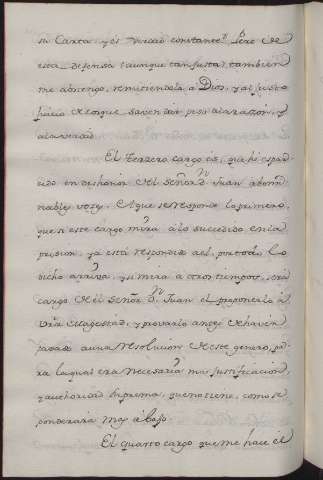 su Carta, y es verdad constante. Pero de
esta defensa (aunque tan justa) tambien
me abstengo, remitiendola a Dios, y al justo
juicio de los que saven dar peso a la razon, y
a la verdad.
El terzero cargo es, que he espar
cido en deshonor del Señor Dn. Juan abomi
nables vozes. A que se responde lo primero,
que si este cargo mira a lo succedido en la
prision, ya está respondido a el, por todo lo
dicho arriva, y si mira a otros tiempos, será
cargo de el Señor Dn. Juan el proponerlo à
Vra. Magestad, y provarlo antes de haver
pasado a una resolucion de este genero, pa
ra la qual era necesaria mas justificacion,
y authoridad suprema, que no tiene, como se
ponderará mas abajo.
El quarto cargo que me hace el